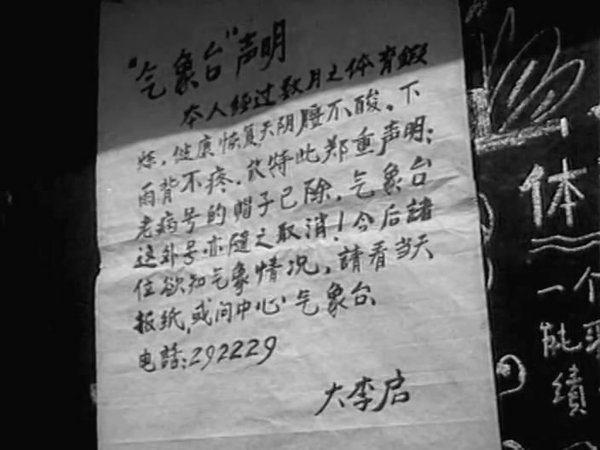 "气象台"声明
本人经过数月之体育鍛
炼，健康恢复天阴腰不酸。下
雨背不疼，故特此郑重声明：
老病号的帽子已除，气象台
这外号亦随之取消！今后諸
位欲知气象情况，請看当天
报纸，或问中心气象台
电話：292229
大李启
体
一个
能
績